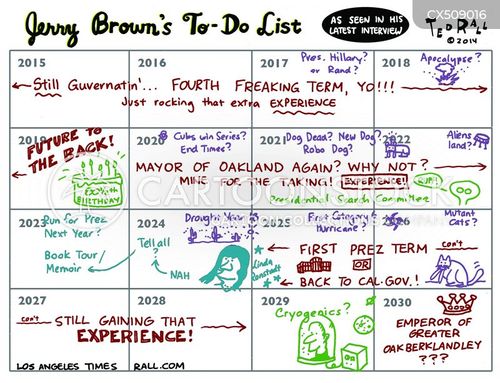 Jerry Brown's To-Do List
AS SEEN IN HIS
LATEST INTERVIEW
CX509016
TED RALL
©2014
2015
2016
2017
Pres. Hillary?
or Rand?
2018
Apocalypse?
Still Guvernatin'... FOURTH FREAKING TERM, YO!!!
Just rocking that extra EXPERIENCE
2019
FUTURE TO
THE BACK!
BIRTHDAY
2020
Cubs win Series?
End Times?
2021
Dog Dead? New Dog?
Robo Dog?
2022
Aliens
land?
MAYOR OF OAKLAND AGAIN? WHY NOT?
MINE FOR THE TAKING! EXPERIENCE!
Presidential Search Committee
2023
Run for Prez
Next Year?
Book Tour/
Memoir
2024
Drought Year
Tell all?
NAH
Linda
Ronstadt
2025
First Category
Hurricane?
2026
Mutant
Cats?
FIRST PREZ TERM
con't
BACK TO CAL.GOV.!
2027
2028
con't STILL GAINING THAT
EXPERIENCE!
2029
Cryogenics?
2030
EMPEROR OF
GREATER
OAKBERKLANDLEY
???
LOS ANGELES TIMES RALL.COM